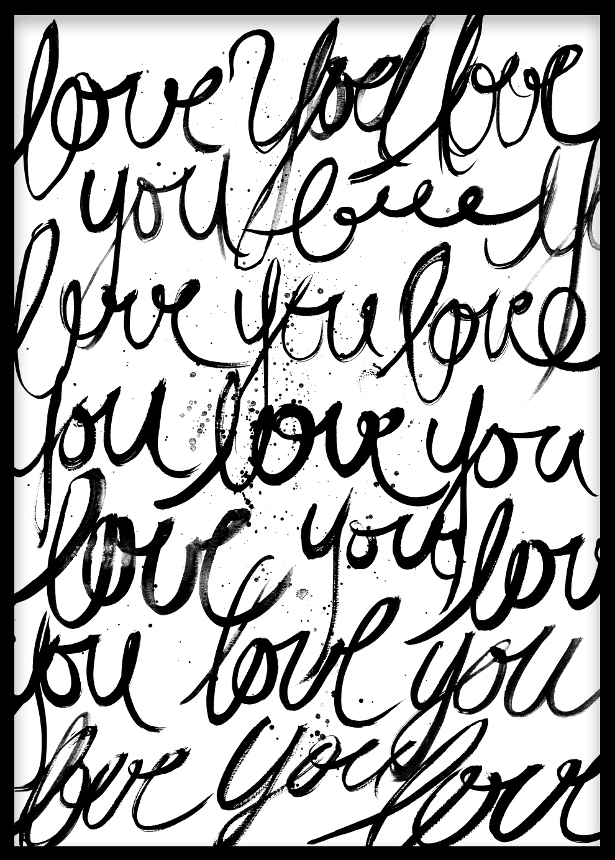 love you love
you love y
love you love
you love you
love you lov
you love you
love you love